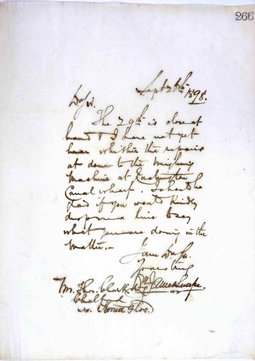 266
Sept 26th 1898.
Dr Sir
The 29th is close at
hand & I have not yet
hear whether the repairs
at done to the Weighing
Machine at
Canal wharf. I should be
glad if you would kindly
drop me a line to say
what you are doing in the
matter.-
I am Dr Sir
Yours truly
Mr. Thos. Clark
Chalford
Nr. Stroud Glos.